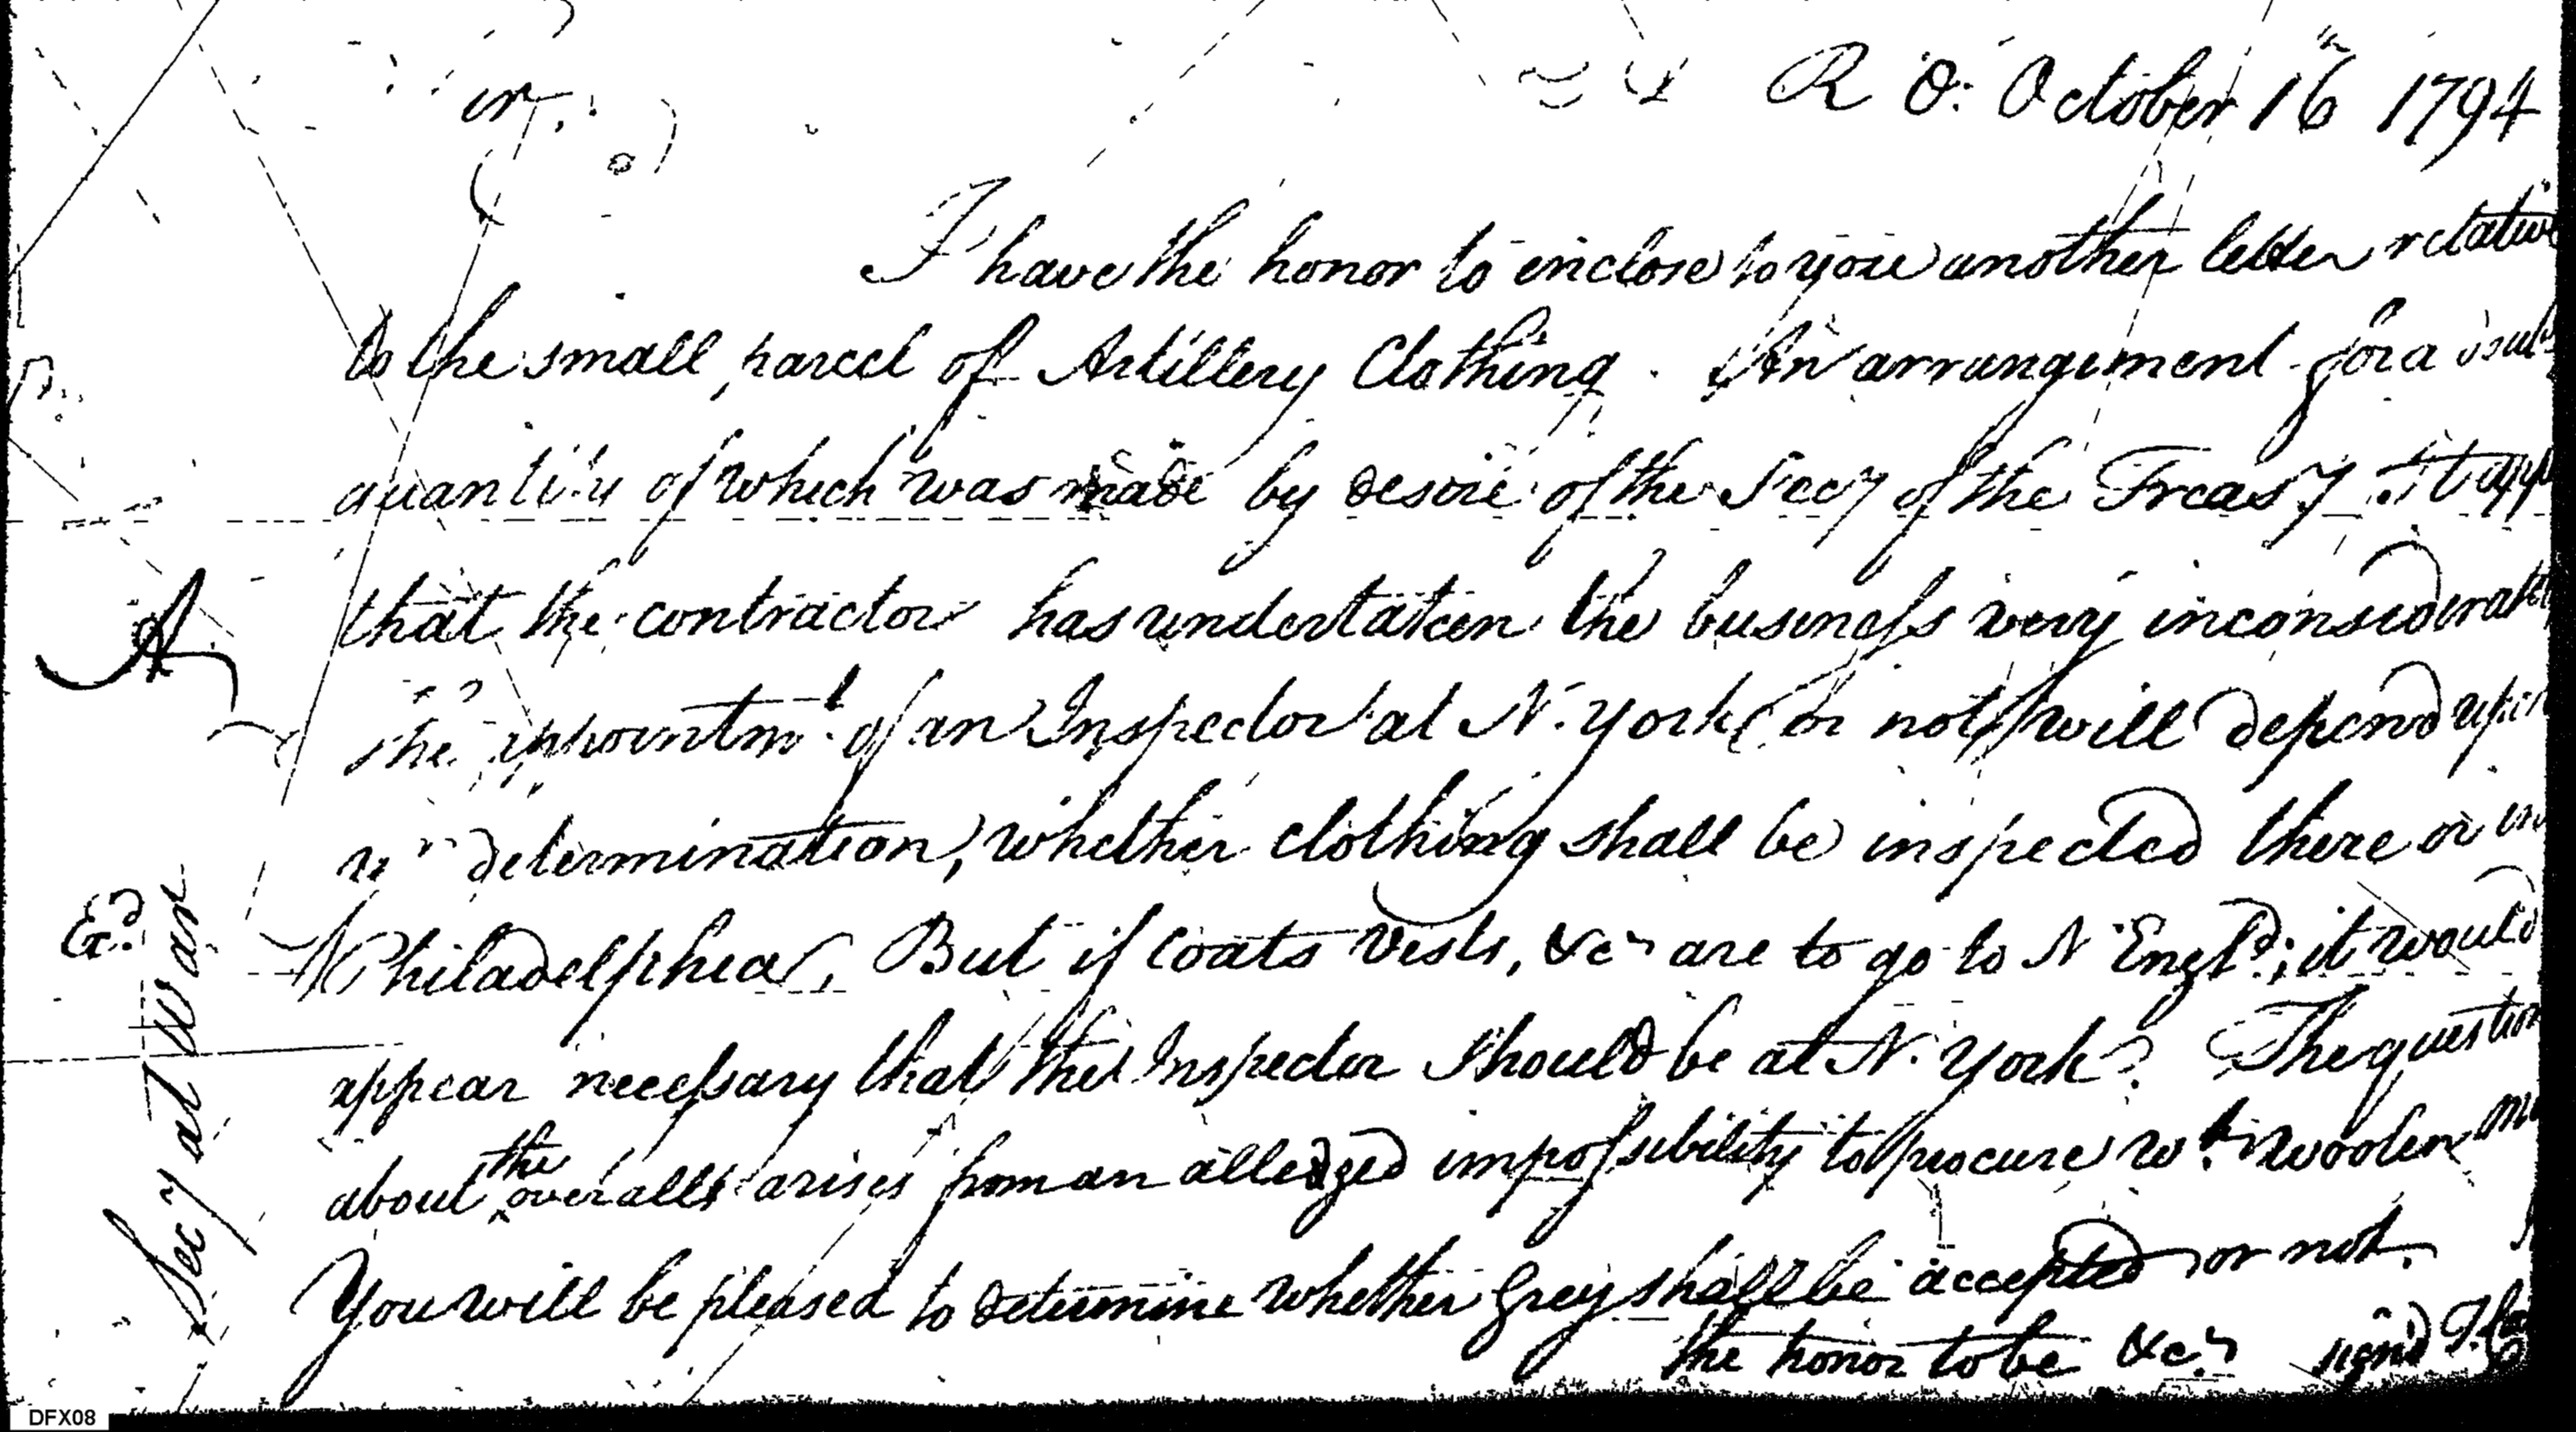 R O: October 16th 1794
I have the honor to enclose to you another letter relative
to the small parcel of Artillery Clothing. An arrangement for a
quantity of which was made by desire of the Secy of the Treasy It
that the contractor has undertaken the business very
the appointmt of an Inspector at N. York (or not) will depend upon
yr determination, whether clothing shall be inspected there or in
Philadelphia. But if Coats vests, &c are to go to N Engld; it would
appear necessary that the Inspector should be at N. York? The question
about the overalls arises from an alledged impossibility to procure wt woolen
You will be pleased to determine whether Grey shall be accepted or not.
the honor to be &c signd
A
Ed
Secy at War
DFX08